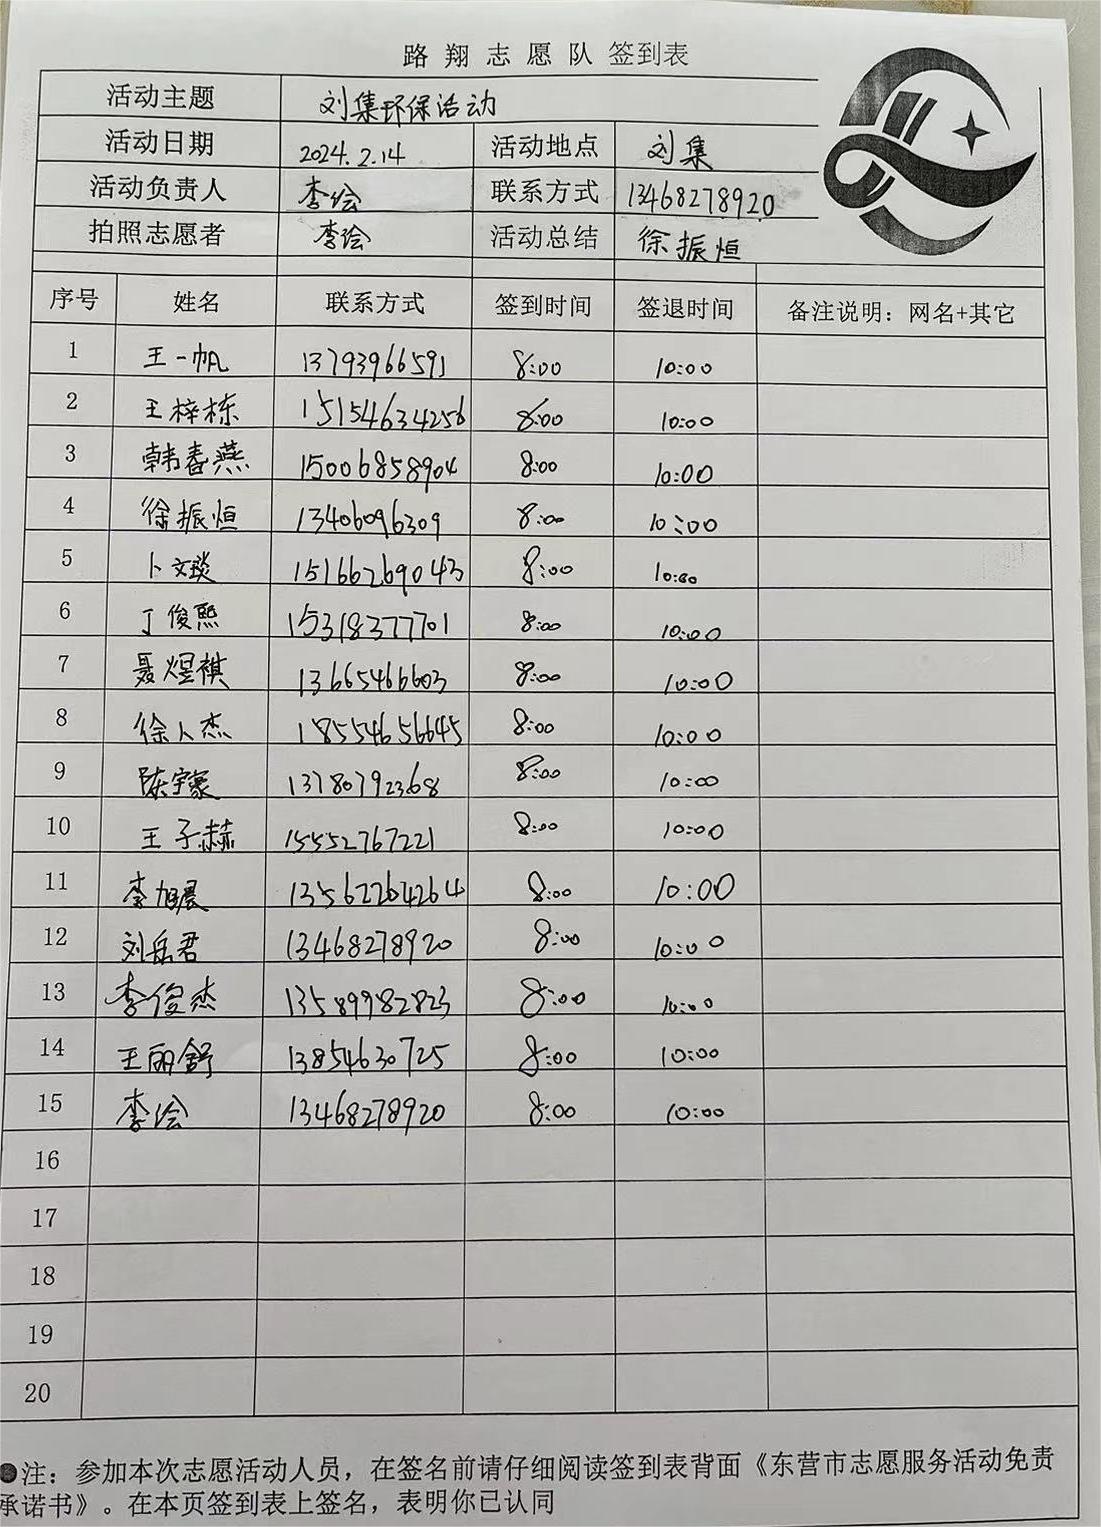 路翔志愿队 签到表
活动主题 刘集环保活动
活动日期 2024.2.14 活动地点 刘集
活动负责人 李绘 联系方式 13468278920
拍照志愿者 李绘 活动总结 徐振恒
序号 姓名 联系方式 签到时间 签退时间 备注说明：网名+其它
1 王一帆 13793966591 8:00 10:00
2 王梓栋 15154634256 8:00 10:00
3 韩春燕 15006858904 8:00 10:00
4 徐振恒 13406096309 8:00 10:00
5 卜文琰 15166269043 8:00 10:00
6 丁俊熙 15318377701 8:00 10:00
7 聂煜祺 13665466603 8:00 10:00
8 徐人杰 18554656645 8:00 10:00
9 陈宇豪 13780792368 8:00 10:00
10 王子赫 15552767221 8:00 10:00
11 李旭晨 13562264264 8:00 10:00
12 刘岳君 13468278920 8:00 10:00
13 李俊杰 13589982823 8:00 10:00
14 王丽舒 13854630725 8:00 10:00
15 李绘 13468278920 8:00 10:00
16
17
18
19
20
●注：参加本次志愿活动人员，在签名前请仔细阅读签到表背面《东营市志愿服务活动免责
承诺书》。在本页签到表上签名，表明你已认同